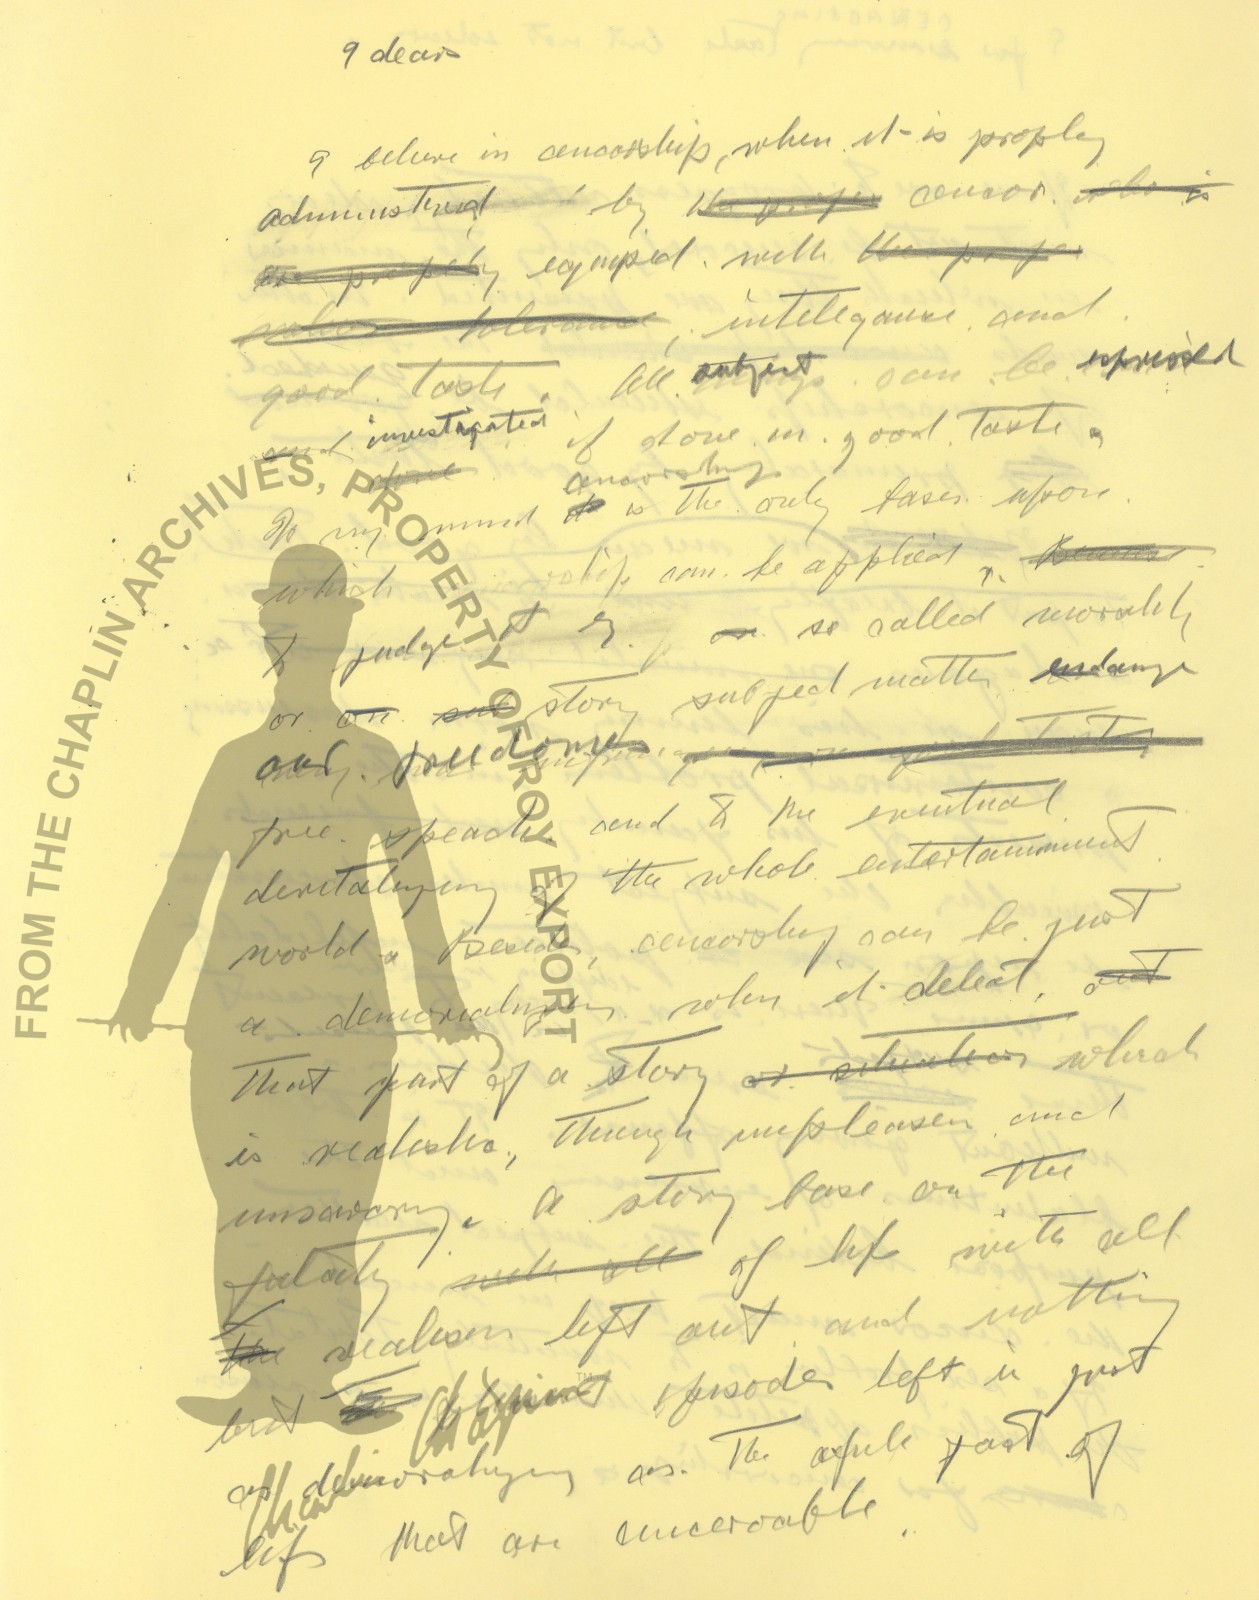 I believe in censorship, when it is proply
administered by the proper censor. who is
properly equiped. with the proper
tolerance, intelegance and
good taste. All subject can be expressed
and investigated if done in good taste.
To my mind censorship is the only bases upon
which can be applied,
To judge it by so called morality
or on story subject matter endange
our freedom
free speach and to the eventual
devitalizing of the whole entertainment
world censorship can be just
a demoralizing when it deleat, out
that part of a story or situation which
is realistic, though unpleasen and
unsavory. A story base on the
with all of life with all
the realism left out and nothing
but episodes left is just
as demoralizing as the part of
life that are
FROM THE CHAPLIN ARCHIVES, PROPERTY OF ROY EXPORT
Charlie Chaplin™